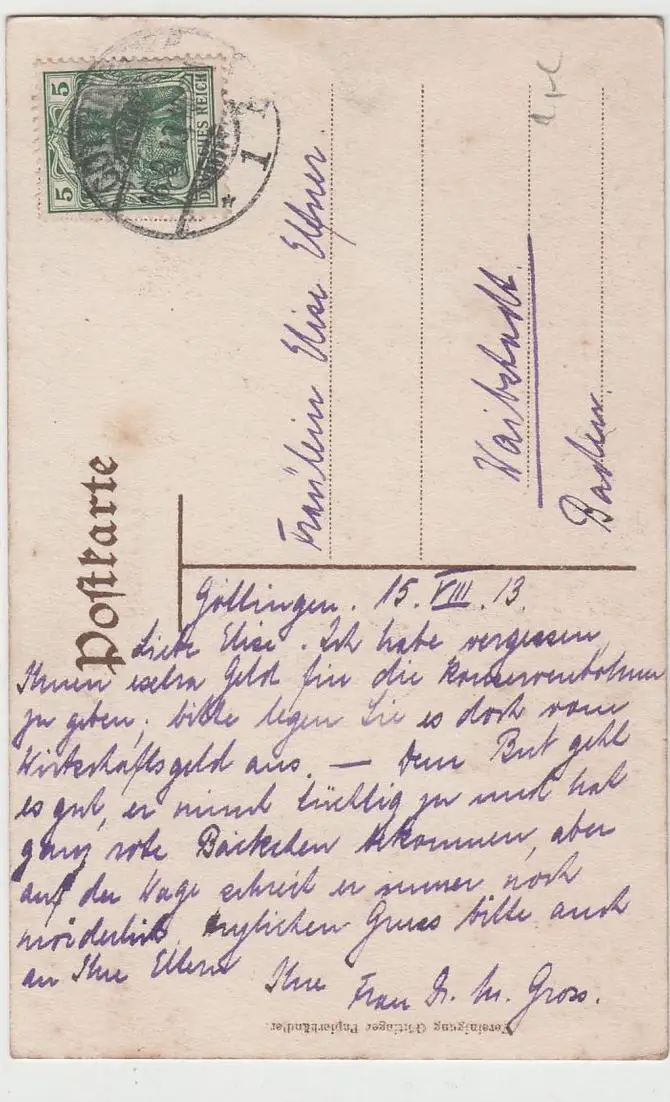 5
5
DEUTSCHES REICH
1
Postkarte
Fräulein Elise
Waibstadt.
Baden.
Göttingen. 15. VIII. 13.
Liebe Elise. Ich habe vergessen,
Ihnen extra Geld für die Konservenbohnen
zu geben, bitte legen Sie es doch vom
Wirtschaftsgeld aus. — Dem Bub geht
es gut, er nimmt tüchtig zu und hat
ganz rote Bäckchen bekommen, aber
auf der Wage schreit er immer noch
mörderlich. Herzlichen Gruss bitte auch
an Ihre Eltern Ihre
Frau Dr. M. Gross.
Vereinigung Göttinger Papierhändler.